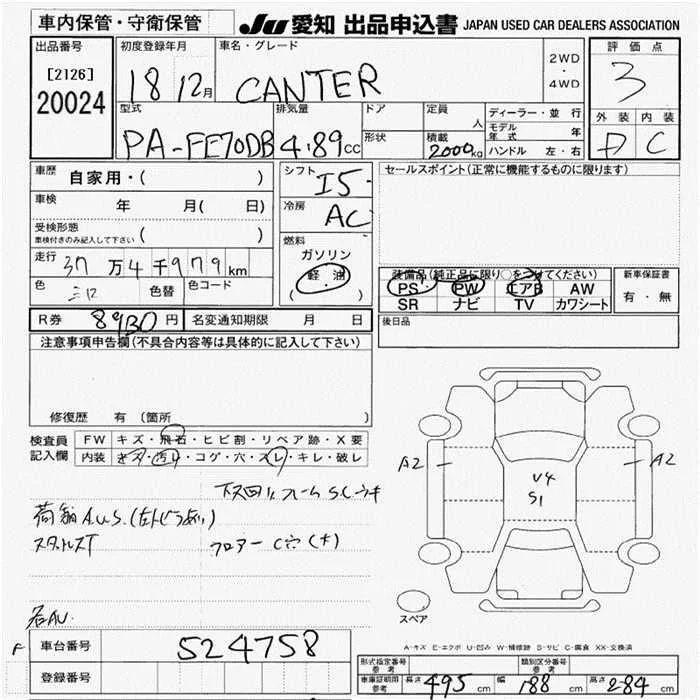 車内保管・守衛保管
JU 愛知 出品申込書 JAPAN USED CAR DEALERS ASSOCIATION
出品番号
[2126]
20024
初度登録年月
18 12月
車名・グレード
CANTER
2WD
・
4WD
評価点
3
外装 内装
D C
型式
PA-FE70DB
排気量
4.89cc
ドア
形状
定員
人
積載
2000kg
ディーラー・並行
モデル年式 年
ハンドル 左・右
車歴
自家用・( )
車検
年 月( 日)
受検形態
車検付きのみ記入して下さい ( )
走行
37万4千979km
色
シロ
色替
色コード
シフト
I5-
冷房
AC
燃料
ガソリン
軽油
( )
セールスポイント(正常に機能するものに限ります)
装備品(純正品に限り○をつけてください)
PS PW エアB AW
SR ナビ TV カワシート
新車保証書
有・無
R券 8930円 名変通知期限 月 日
後日品
注意事項申告欄(不具合内容等は具体的に記入して下さい)
修復歴 有(箇所
検査員
記入欄
FW キズ・飛石・ヒビ割・リペア跡・X要
内装 キズ・汚れ・コゲ・穴・スレ・キレ・破レ
A2
A2
U4
S1
フロアー C穴(大)
スペア
A-キズ E-エクボ U-凹み W-補修跡 S-サビ C-腐食 XX-交換済
F
車台番号 524758
登録番号
形式指定番号
参考
類別区分番号
参考
車庫証明用
参考
長さ 495cm 幅 188cm 高さ 284cm